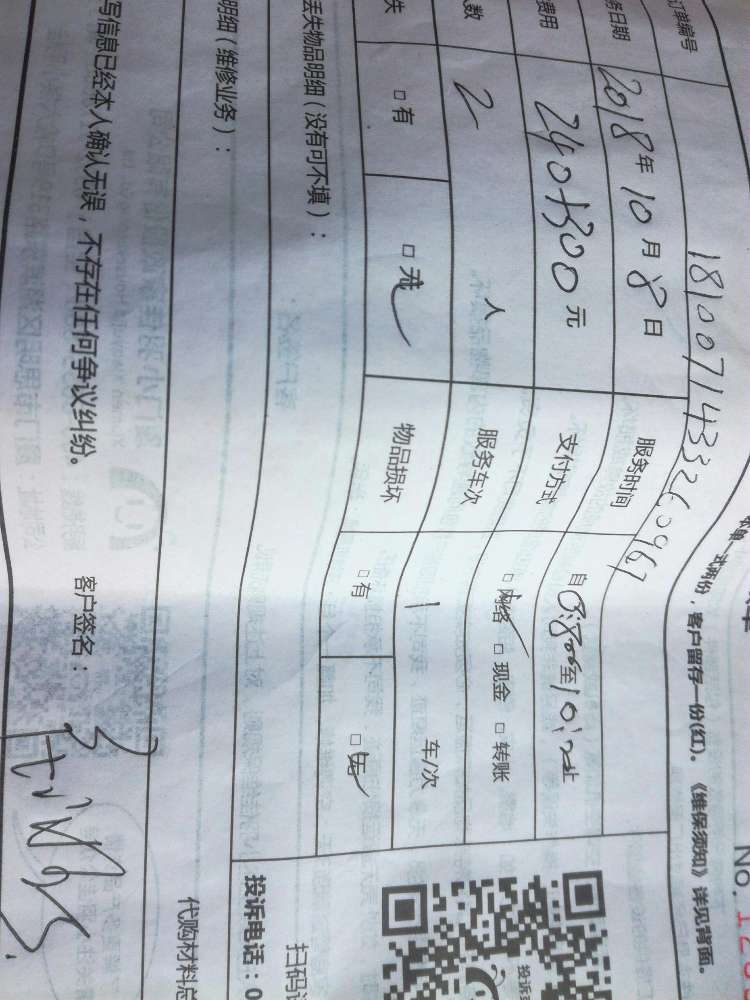 No. 12
本单一式两份，客户留存一份(红)。《维保须知》详见背面。
订单编号 1810071433260967
务日期 2018年10月8日 服务时间 自08:00至10:20止
费用 240+300元 支付方式 □网络 ✓ □现金 □转账
数 2 人 服务车次 1 车/次
失 □有 □无 ✓ 物品损坏 □有 □无 ✓
丢失物品明细（没有可不填）：
明细（维修业务）：
写信息已经本人确认无误，不存在任何争议纠纷。 客户签名：
投诉
扫码
投诉电话：0
代购材料总